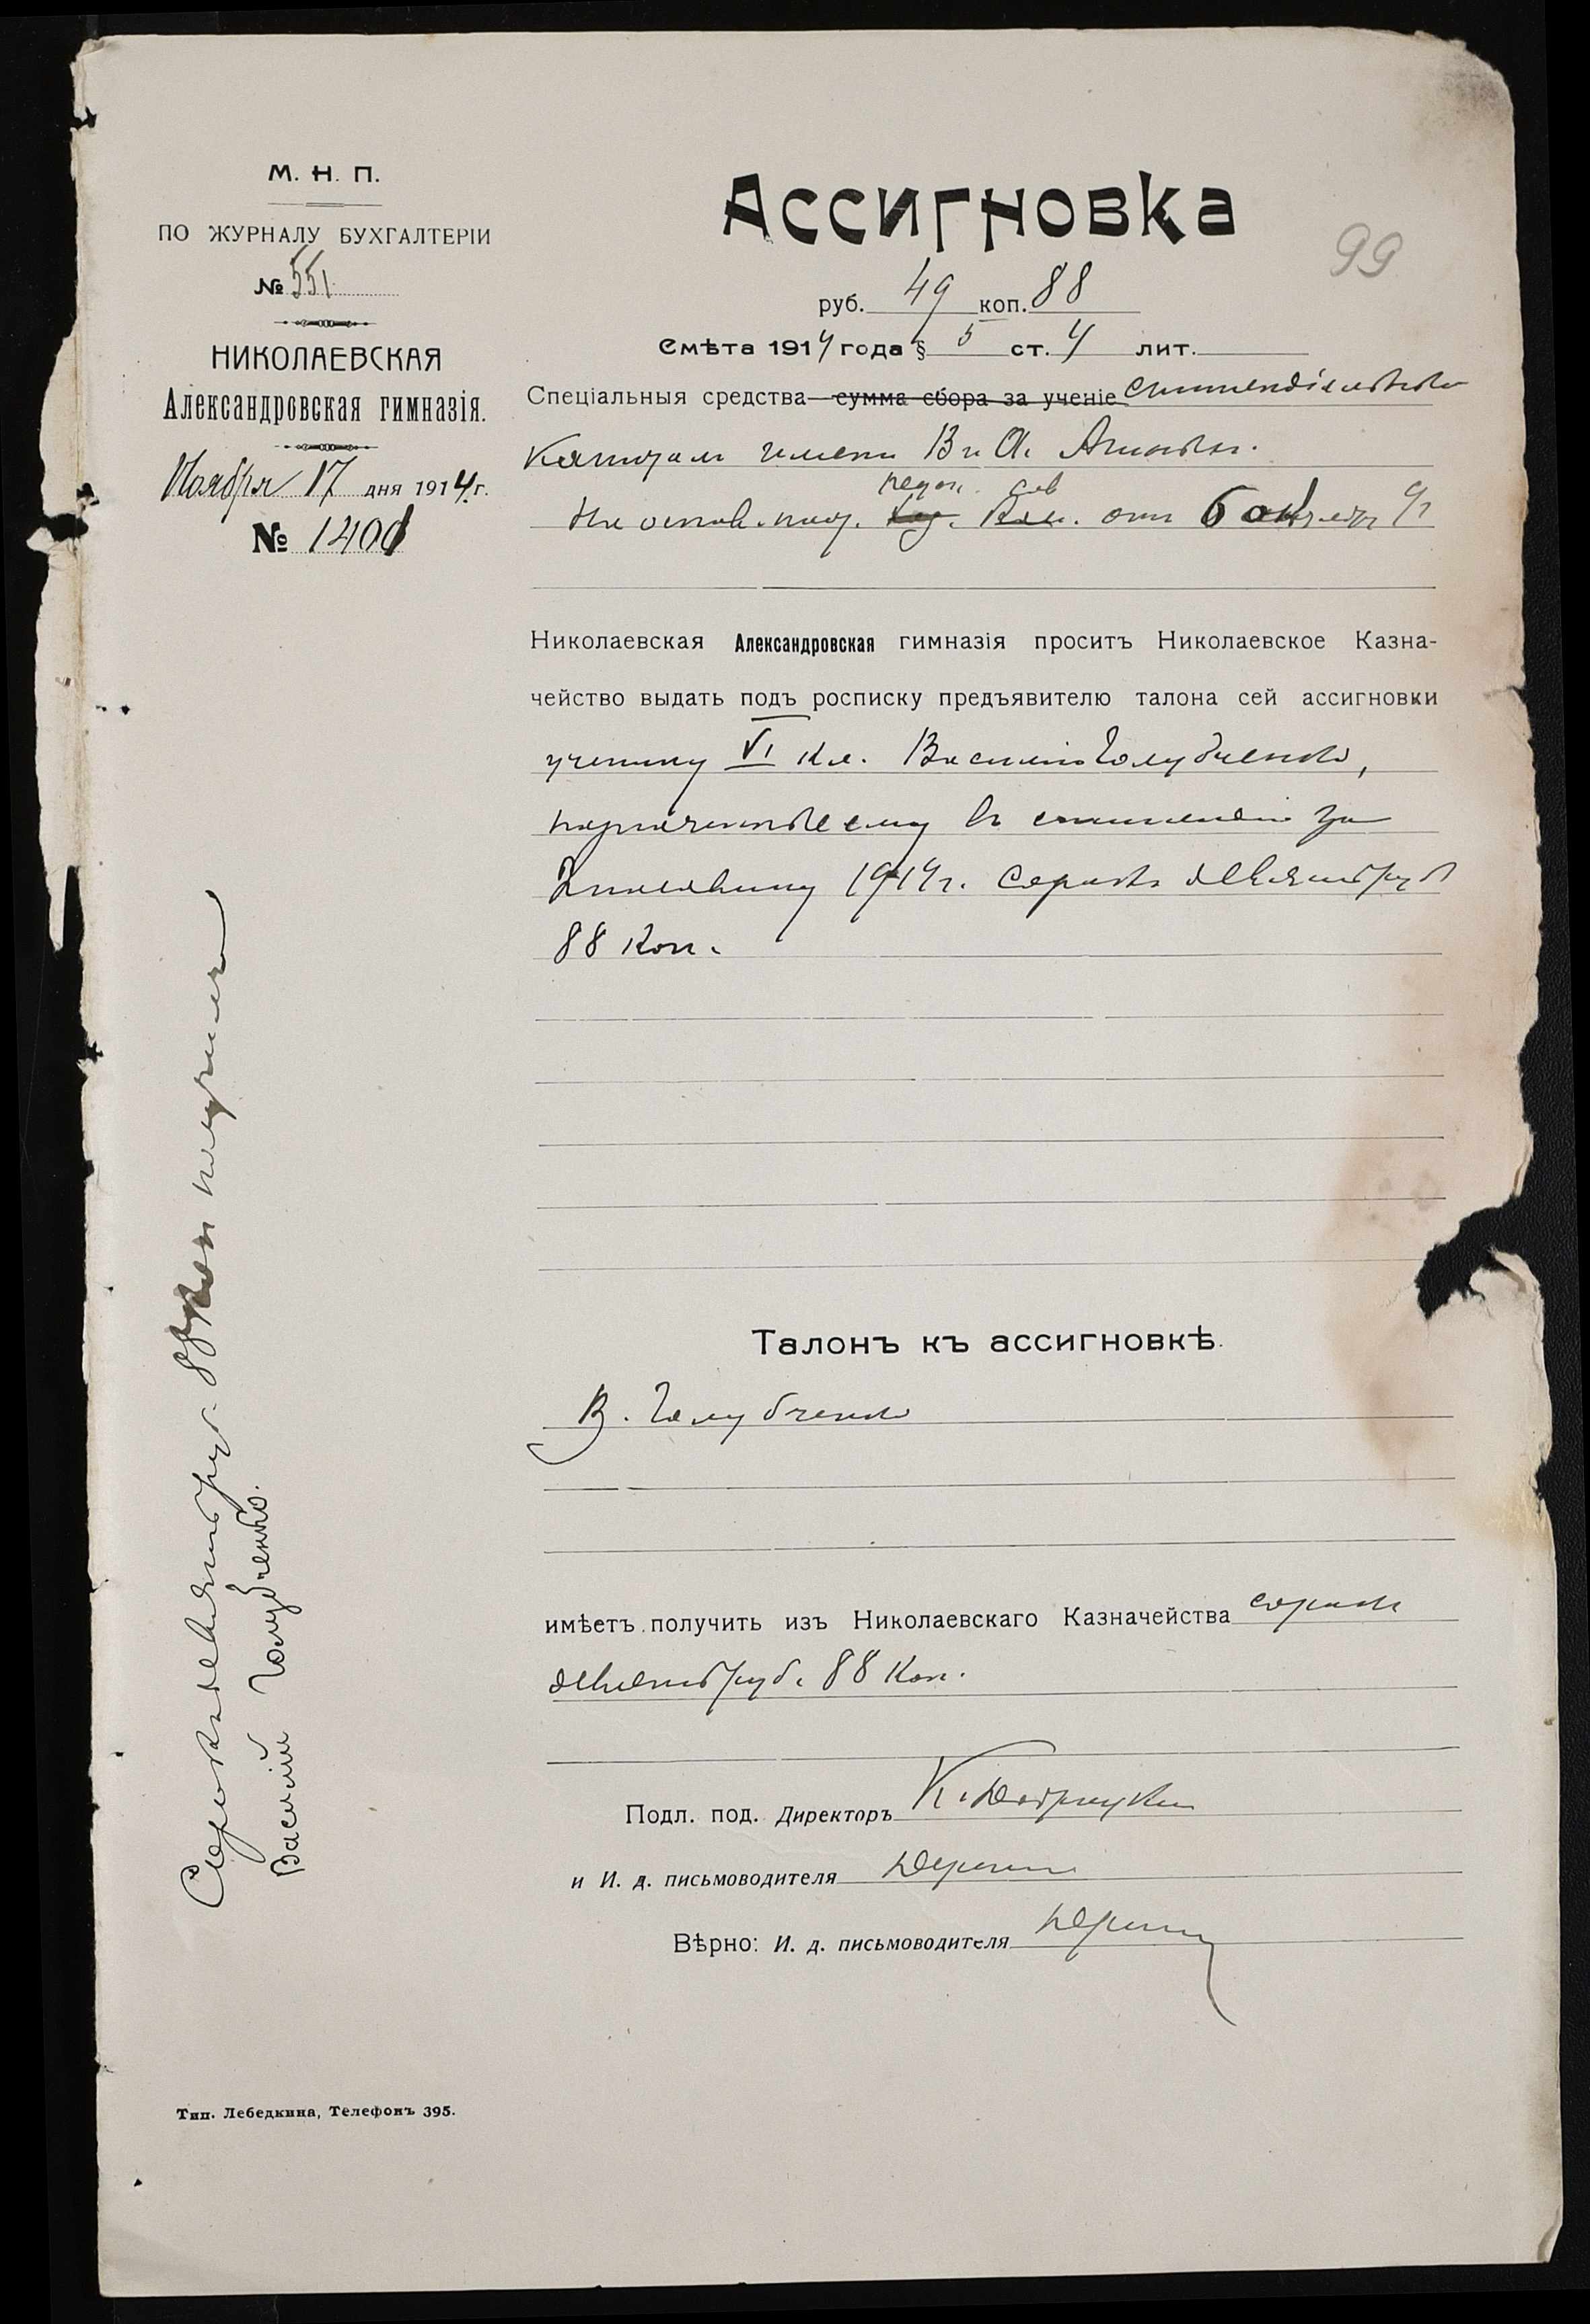 М. Н. П.
ПО ЖУРНАЛУ БУХГАЛТЕРІИ
№ 551
НИКОЛАЕВСКАЯ
Александровская гимназія.
Ноября 17 дня 1914 г.
№ 1400
Ассигновка
99
руб. 49 коп. 88
Смѣта 1914 года § 5 ст. 4 лит.
Спеціальныя средства сумма сбора за ученіе
имени В. А.
педаг. сов
На основ. пост. от 6 октября
Николаевская Александровская гимназія проситъ Николаевское Казна-
чейство выдать подъ росписку предъявителю талона сей ассигновки
ученику VI кл. Василію Голубченко,
ему в стипендію за
2 половину 1914 г. сорокъ девять руб
88 коп.
Талонъ къ ассигновкѣ.
В. Голубченко
имѣетъ получить изъ Николаевскаго Казначейства сорокъ
девять руб. 88 коп.
Подл. под. Директоръ К.
и И. д. письмоводителя
Вѣрно: И. д. письмоводителя
Сорокъ девять руб. 88 коп получилъ
Василій Голубченко.
Тип. Лебедкина, Телефонъ 395.